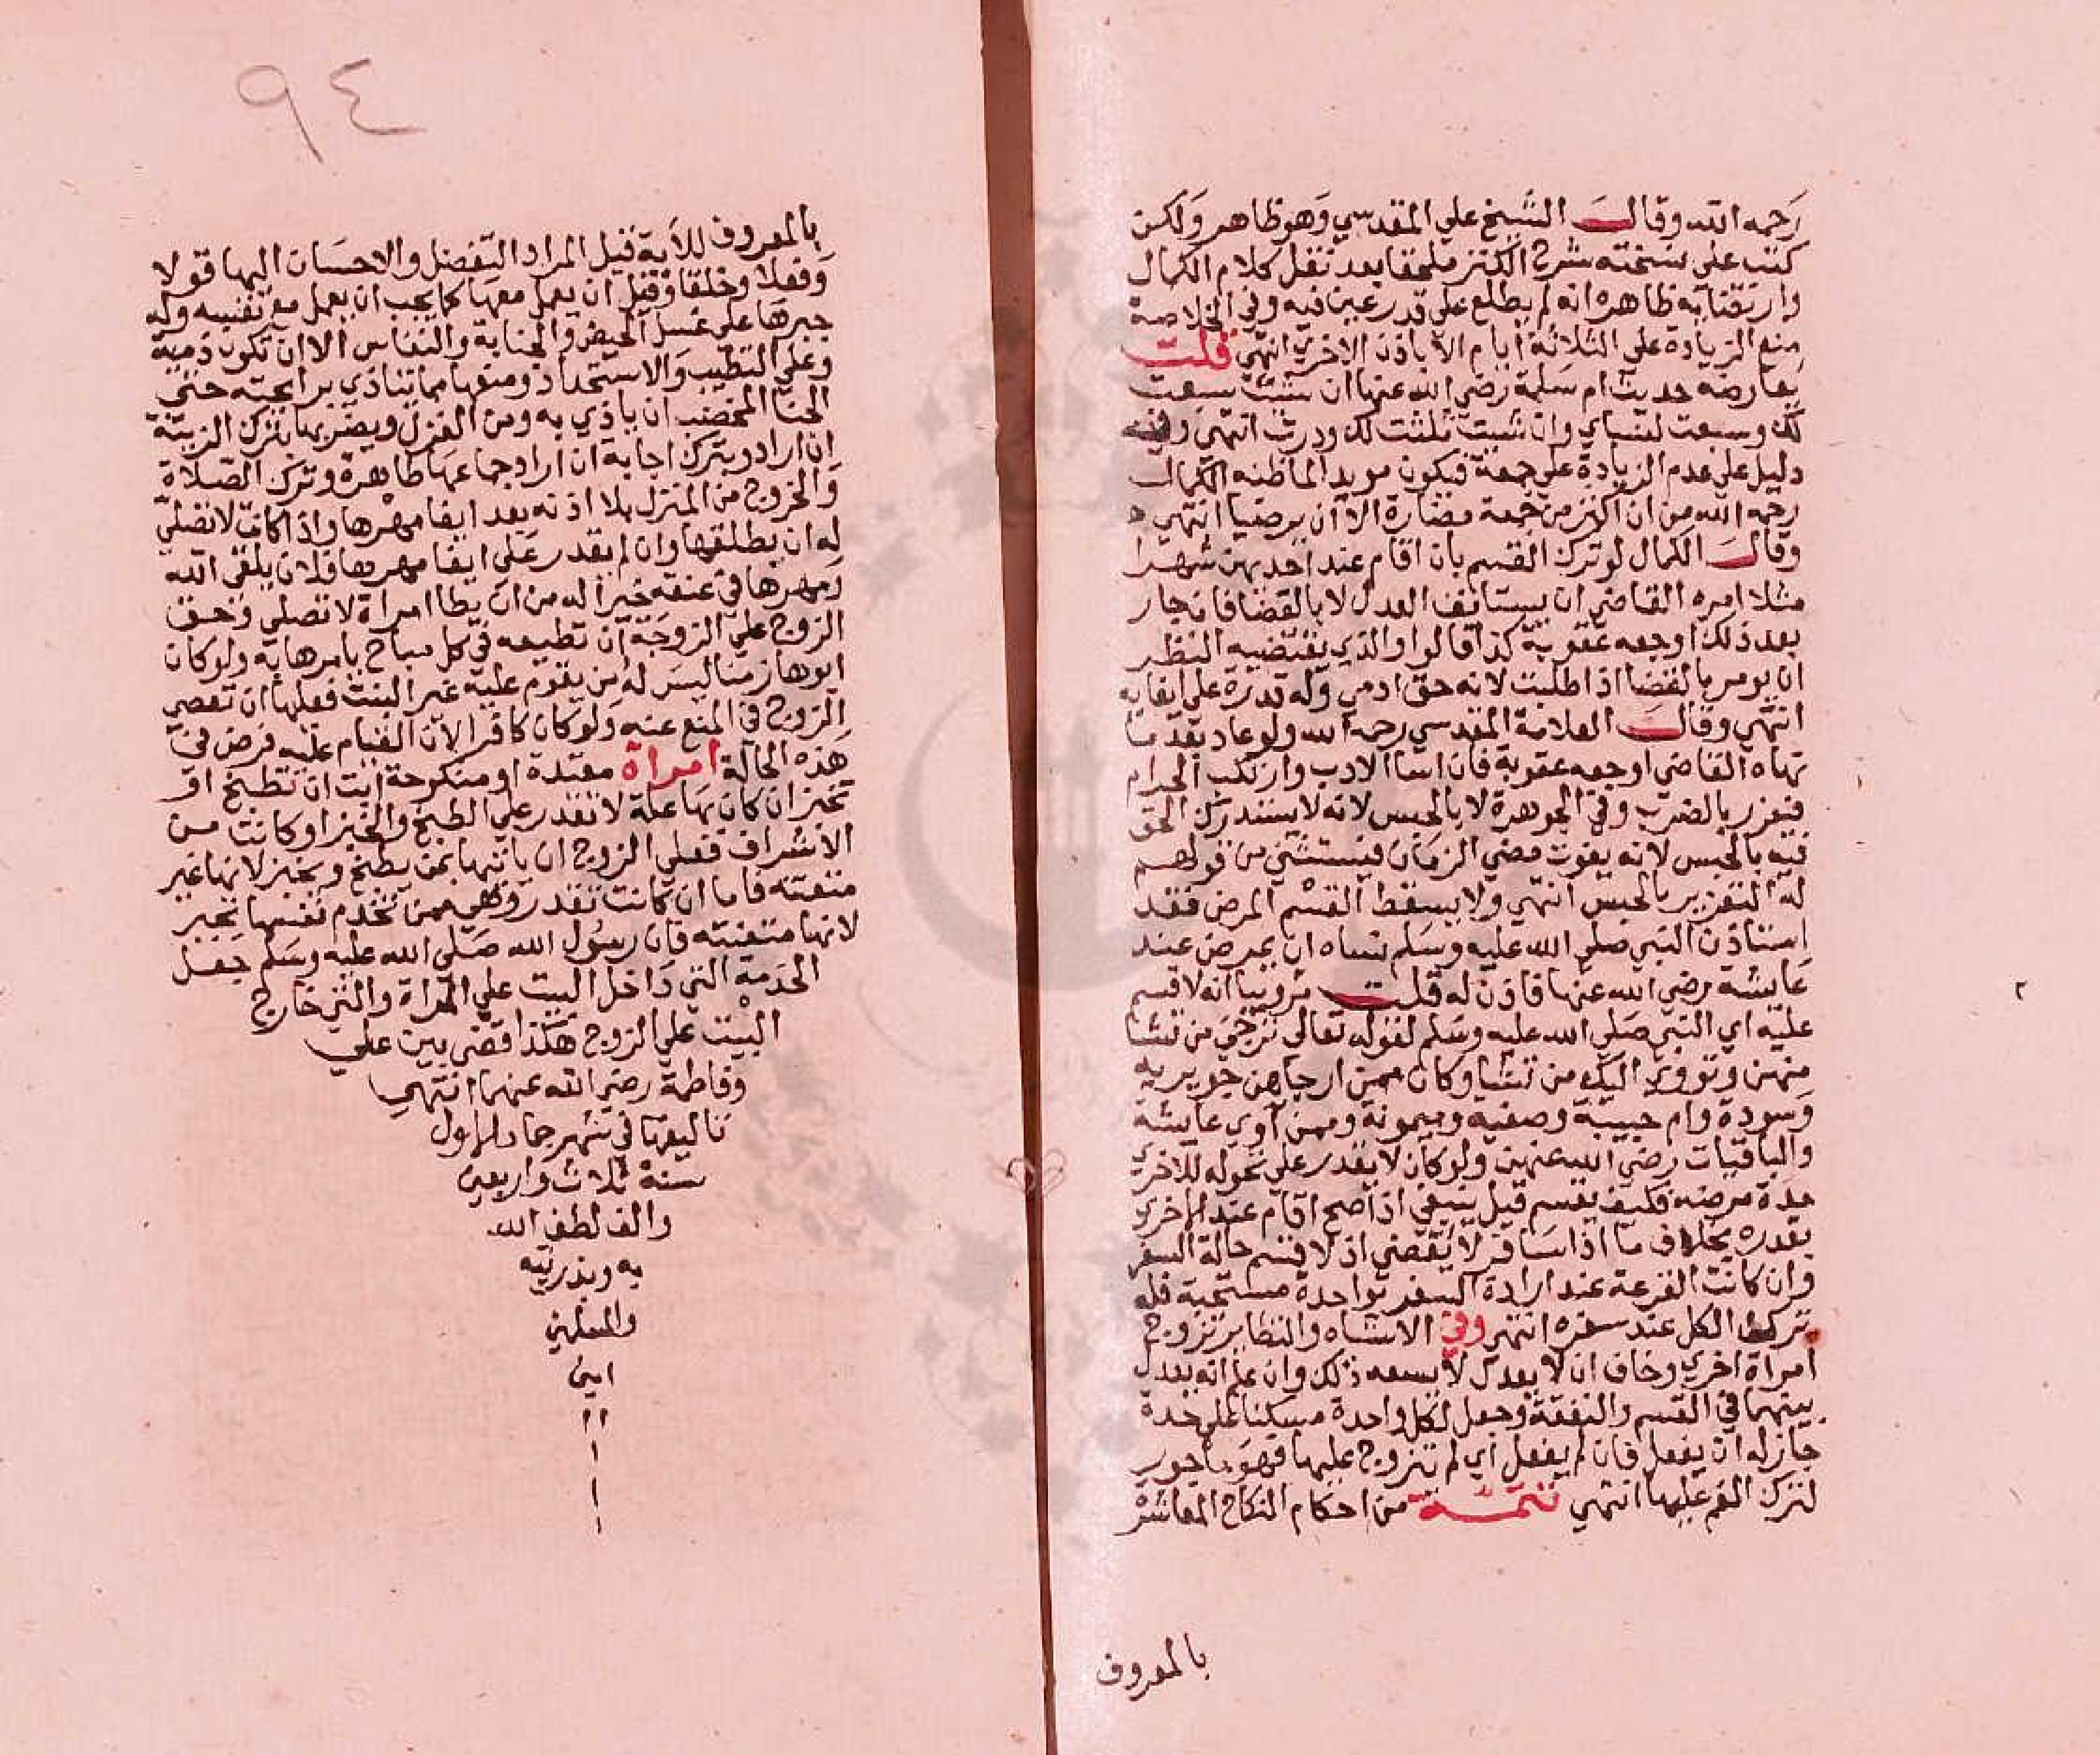 رحمه الله وقال الشيخ علي المقدسي وهو ظاهر ولكن
كتب على نسخته شرح الكنز ملحقا بعد نقل كلام الكمال
وارتضائه ظاهره انه لم يطلع على قدر عين فيه وفي الخلاصة
منع الزيادة على الثلاثة ايام الا باذن الاخرى انتهى قلت
يعارضه حديث ام سلمة رضي الله عنها ان شئت سبعت
لك وسبعت لنساي وان شيت ثلثت لك ودرت انتهى وفيه
دليل على عدم الزيادة على جمعة فيكون مويدا لما ظنه الكمال
رحمه الله من ان اكثر من جمعة مضارة الا ان يرضيا انتهى
وقال الكمال لو ترك القسم بان اقام عند احديهن شهرا
مثلا امره القاضي ان يستانف العدل لا بالقضا فان جار
بعد ذلك اوجعه عقوبة كذا قالوا والذي يقتضيه النظر
ان يومر بالقضا اذا طلبت لانه حق ادمي وله قدرة على ايفايه
انتهى وقال العلامة المقدسي رحمه الله ولو عاد بعد ما
نهاه القاضي اوجعه عقوبة فانه اسا الادب وارتكب الحرام
فيعزر بالضرب وفي الجوهرة لا بالحبس لانه لا يستدرك الحق
فيه بالحبس لانه يفوت مضي الزمان فيستثنى من قولهم
له التعزير بالحبس انتهى ولا يسقط القسم المرض فقد
استاذن النبي صلى الله عليه وسلم نساه ان يمرض عند
عايشة رضي الله عنها فاذن له قلت روينا انه لا قسم
عليه اي النبي صلى الله عليه وسلم لقوله تعالى ترجي من تشا
منهن وتؤوي اليك من تشا وكان ممن ارجاهن جويريه
وسودة وام حبيبة وصفيه وميمونة وممن آوي عايشة
والباقيات رضي الله عنهن ولو كان لا يقدر على تحوله للاخرى
مدة مرضه فكيف يقسم قيل ينبغي اذا صح اقام عند الاخرى
بقدره بخلاف ما اذا سافر لا يقضي اذ لا قسم حالة السفر
وان كانت القرعة عند ارادة السفر بواحدة مستحبة فله
ترك الكل عند سفره انتهى وفي الاشباه والنظاير تزوج
امراة اخرى وخاف ان لا يعدل لا يسعه ذلك وان علم انه يعدل
بينهما في القسم والنفقة وجعل لكل واحدة مسكنا على حدة
جاز له ان يفعل فان لم يفعل اي لم تتزوج عليها فهو ماجور
لترك الغم عليها انتهى تتمة من احكام النكاح المعاشرة
بالمعروف
٩٤
بالمعروف للآية قيل المراد التفضل والاحسان اليها قولا
وفعلا وخلقا وقيل ان يعمل معها كما يحب ان يعمل مع نفسه وله
جبرها على غسل الحيض والجنابة والنفاس الا ان تكون ذمية
وعلى التطيب والاستحداد ومنعها مما يتاذي برايحته حتى
الحنا المخضب ان ياذي به ومن الغزل ويضربها بترك الزينة
ان اراد وبترك اجابة ان اراد جماعها طاهرة وترك الصلاة
والخروج من المنزل بلا اذنه بعد ايفا مهرها واذا كانت لا تصلي
له ان يطلقها وان لم يقدر على ايفا مهرها ولان يلقى الله
ومهرها في عنقه خيرا له من ان يطا امراة لا تصلي وحق
الزوج على الزوجة ان تطيعه في كل مباح يامرها به ولو كان
ابوها زمنا ليس له من يقوم عليه غير البنت فعليها ان تعصي
الزوج في المنع عنه ولو كان كافرا لان القيام عليه فرض في
هذه الحالة امراة معتدة او منكوحة ابت ان تطبخ او
تخبز ان كان بها علة لا تقدر على الطبخ والخبز او كانت من
الاشراف فعلى الزوج ان ياتيها بمن يطبخ ويخبز لانها غير
متعنته فاما ان كانت تقدر وهي ممن تخدم نفسها تجبر
لانها متعنته فان رسول الله صلى الله عليه وسلم جعل
الخدمة التي داخل البيت على المراة والتي خارج
البيت على الزوج هكذا قضى بين علي
وفاطمة رضي الله عنهما انتهى
تاليفها في شهر جماد الاول
سنة ثلاث واربعين
والف لطف الله
به وبذريته
والمسلمين
امين